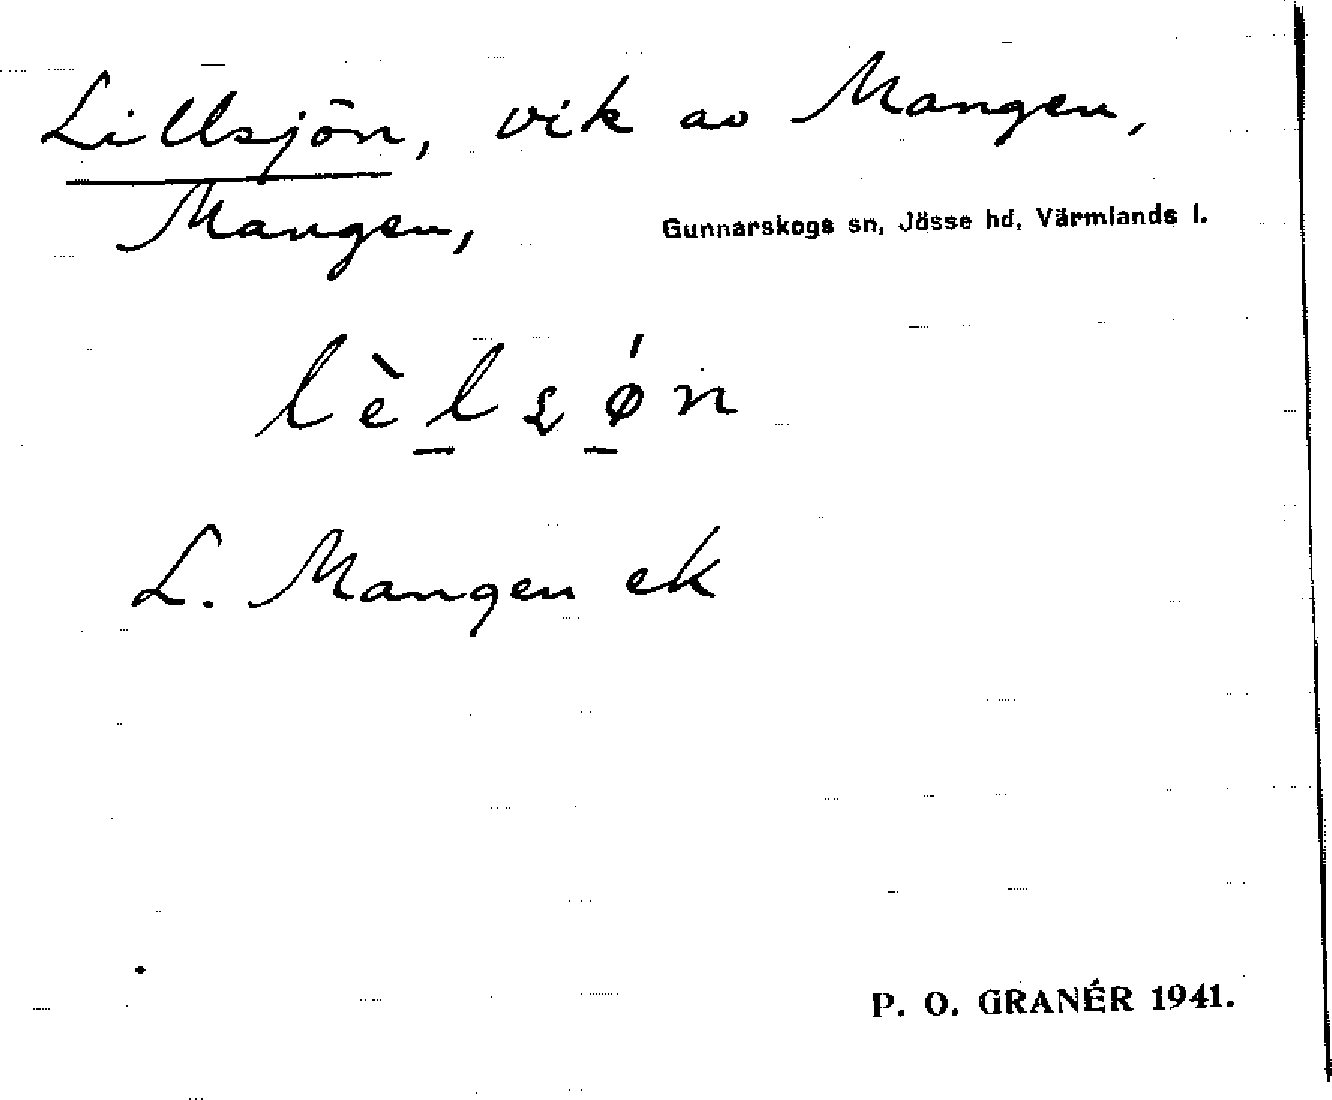 Lillsjön, vik av Mangen,
Mangen, Gunnarskogs sn, Jösse hd, Värmlands l.
L. Mangen ek
P. O. GRANÉR 1941.